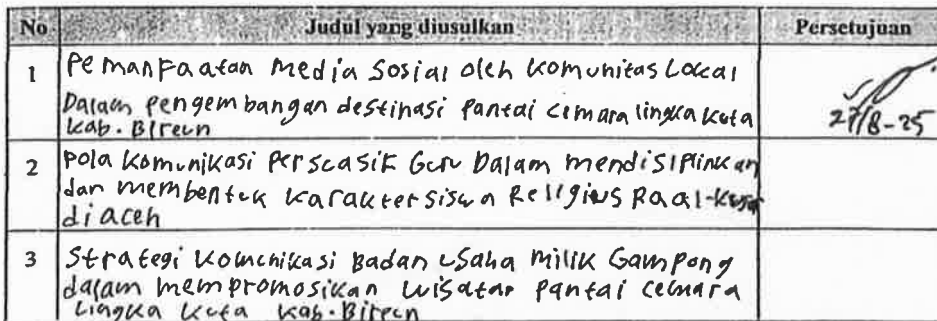 No Judul yang diusulkan Persetujuan
1 Pemanfaatan media Sosial oleh Komunitas Local
Dalam Pengembangan destinasi Pantai cemara lingka kuta
Kab. Bireun
27/8-25
2 Pola Komunikasi Perscasif Guru Dalam mendisiplinkan
dan membentuk karakter siswa Religius Raal-
di aceh
3 Strategi Komunikasi Badan usaha milik Gampong
dalam mempromosikan wisatan Pantai cemara
Lingka Kuta Kab. Bireun